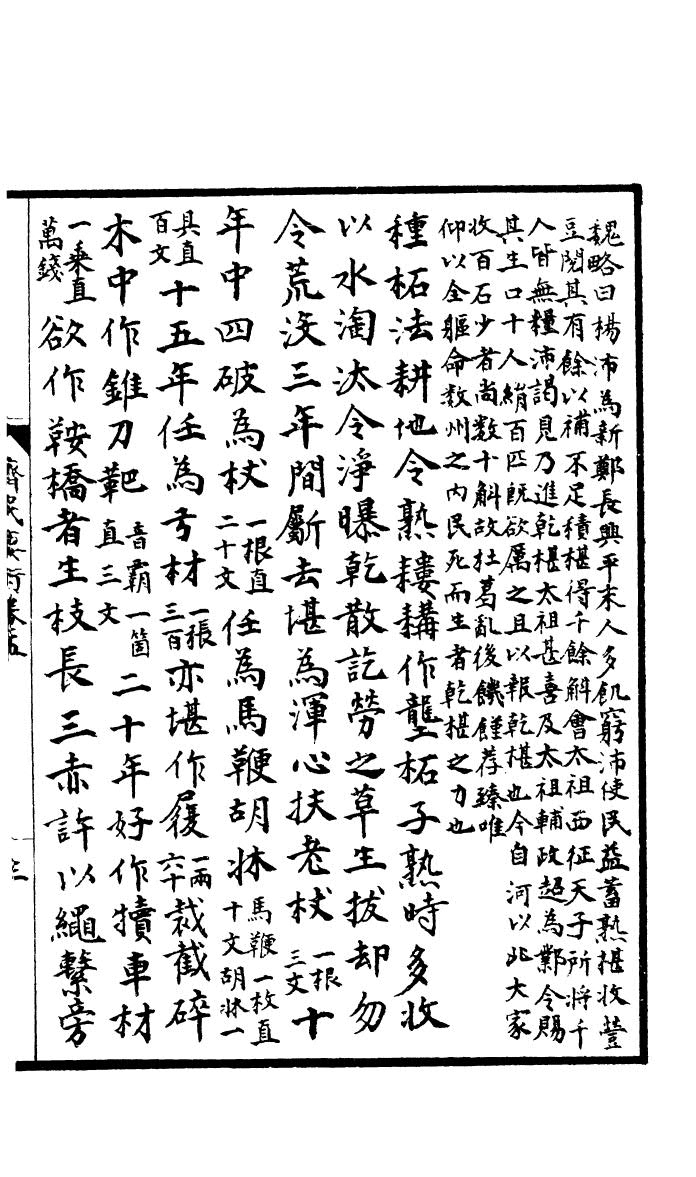 魏略曰楊沛為新鄭長興平末人多飢窮沛使民益蓄熟椹收
豆閱其有餘以補不足積椹得千餘斛會太祖西征天子所將千
人皆無糧沛謁見乃進乾椹太祖甚喜及太祖輔政超為鄴令賜
其生口十人絹百匹既欲厲之且以報乾椹也今自河以北大家
收百石少者尚數十斛故杜葛亂後饑饉荐臻唯
仰以全軀命數州之內民死而生者乾椹之力也
種柘法耕地令熟耬耩作壟柘子熟時多收
以水淘汰令淨曝乾散訖勞之草生拔却勿
令荒沒三年間斸去堪為渾心扶老杖一根三文十
年中四破為杖一根直二十文任為馬鞭胡牀馬鞭一枚直十文胡牀一
具直百文十五年任為弓材一張三百亦堪作履一兩六十裁截碎
木中作錐刀靶音霸一箇直三文二十年好作犢車材
一乘直萬錢欲作鞍橋者生枝長三赤許以繩繫旁
齊民要術卷五
三